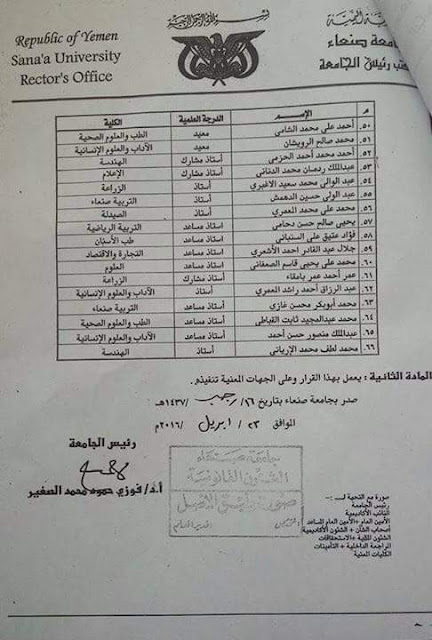 Republic of Yemen
Sana'a University
Rector's Office
جامعة صنعاء
رئيس الجامعة
م الإسم الدرجة العلمية الكلية
٥٠. أحمد علي محمد الشامي معيد الطب والعلوم الصحية
٥١. محمد صالح الرويشان معيد الآداب والعلوم الإنسانية
٥٢. أحمد محمد أحمد الحزمي أستاذ مشارك الهندسة
٥٣. عبدالملك ردمان محمد الدناني أستاذ مشارك الإعلام
٥٤. عبد الوالي محمد سعيد الاغبري أستاذ الزراعة
٥٥. عبد الولي حسين الدهمش أستاذ التربية صنعاء
٥٦. محمد علي محمد العمري أستاذ الصيدلة
٥٧. يحيى صالح حسن دحامي أستاذ مساعد التربية الرياضية
٥٨. فؤاد عتيق علي السنباني أستاذ مساعد طب الأسنان
٥٩. جلال عبد القادر احمد الأشعري أستاذ مساعد التجارة والاقتصاد
٦٠. محمد علي يحيى قاسم الصعفاني أستاذ مساعد العلوم
٦١. عمر أحمد عمر بامقاء أستاذ مشارك الزراعة
٦٢. عبد الرزاق أحمد راشد العمري أستاذ الآداب والعلوم الإنسانية
٦٣. محمد أبوبكر محسن غازي أستاذ مساعد التربية صنعاء
٦٤. محمد عبدالمجيد ثابت القباطي أستاذ مساعد الطب والعلوم الصحية
٦٥. عبدالملك منصور حسن أحمد أستاذ مساعد الآداب والعلوم الإنسانية
٦٦. محمد لطف محمد الإرياني أستاذ الهندسة
المادة الثانية : يعمل بهذا القرار وعلى الجهات المعنية تنفيذه.
صدر بجامعة صنعاء بتاريخ ١٦/ رجب /١٤٣٧هـ
الموافق ٢٣ / ابريل /٢٠١٦م
رئيس الجامعة
أ.د/ فوزي حمود محمد الصغير
جامعة صنعاء
الشئون القانونية
صورة طبق الأصل
صورة مع التحية لـ :-
رئيس الجامعة
النائب الأكاديمية
الأمين العام +الأمين العام المساعد
أصحاب الشأن + الشئون الأكاديمية
الشئون المالية +الاستحقاقات
المراجعة الداخلية + التأمينات
الكليات المعنية